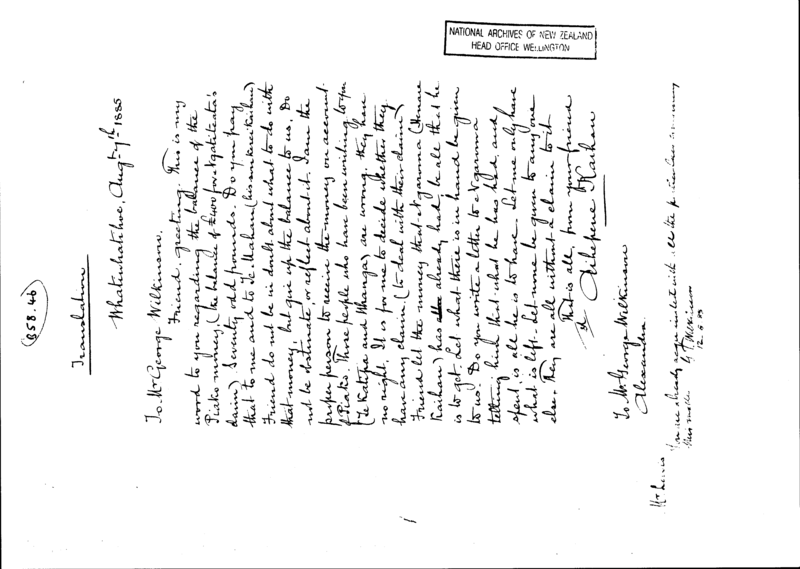 NATIONAL ARCHIVES OF NEW ZEALAND
HEAD OFFICE WELLINGTON
(858.46)
Translation
Whatiwhatihoe, Augt 7th 1885
To Mr George Wilkinson.
Friend, greeting. This is my
word to you regarding the balance of the
Piako money, (the balance of £200 for Ngatiteata's
claim) Seventy odd pounds. Do you pay
that to me and to Te Mahia (his son
Friend do not be in doubt about what to do with
that money, but give up the balance to us. Do
not be obstinate, or reflect about it. I am the
proper person to receive the money on account
of Piako. Those people who have been writing to you
(Te Katipa and Whanga) are wrong. they have
no right. It is for me to decide whether they
have any claim, (to deal with their claim)
Friend let the money that Ngaruna
Kaihau) has already had be all that he
is to get. Let what there is in hand be given
to us. Do you write a letter to Ngaruna
telling him that what he has had, and
spent, is all he is to have. Let me only have
what is left. Let none be given to any one
else. They are all without a claim to it
That is all, from your friend
Aihepene Kaihau
To Mr George Wilkinson
Alexandra
Mr Lewis
You are already acquainted with all the particulars
this matter GTWilkinson
12.8.85